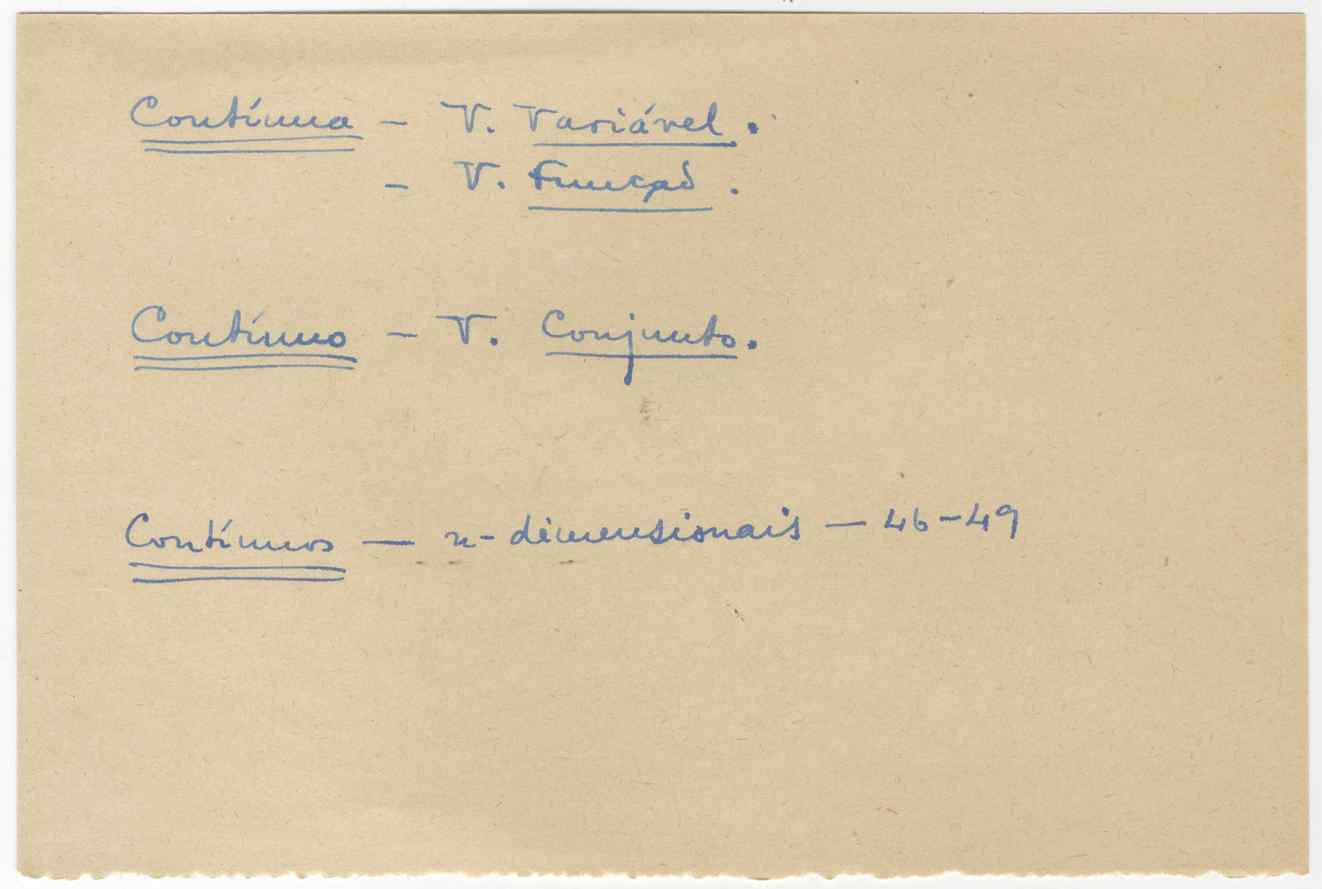 Contínua – V. Variável.
– V. Função.
Contínuo – V. Conjunto.
Contínuos — n-dimensionais — 46-49